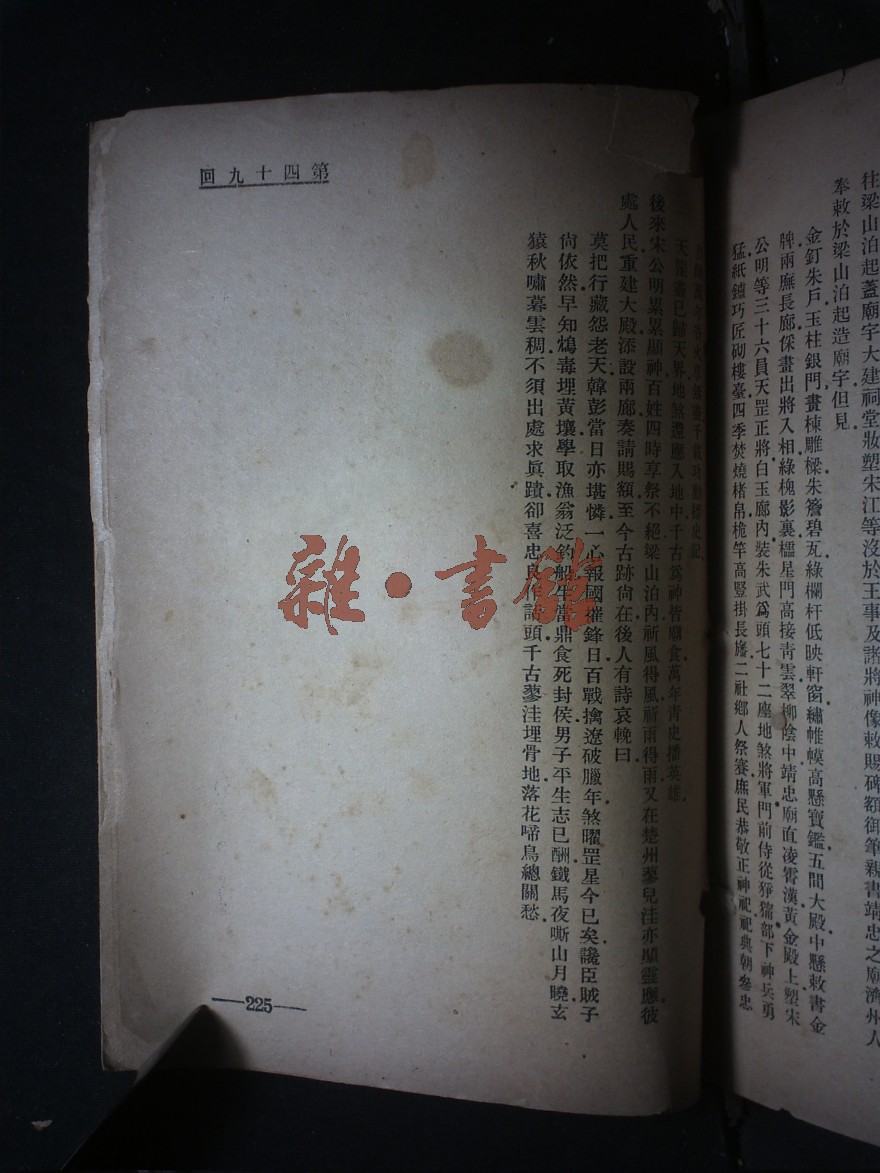 往梁山泊起蓋廟宇大建祠堂妝塑宋江等沒於王事及諸將神像敕賜碑額御筆親書靖忠之廟濟州人
奉敕於梁山泊起造廟宇但見
金釘朱戶玉柱銀門畫棟雕樑朱簷碧瓦綠欄杆低映軒窗繡帷幙高懸寶鑑五間大殿中懸敕書金
牌兩廡長廊倸畫出將入相綠槐影裏櫺星門高接靑雲翠柳陰中靖忠廟直凌霄漢黃金殿上塑宋
公明等三十六員天罡正將白玉廊內裝朱武爲頭七十二座地煞將軍門前侍從猙獰部下神兵勇
猛紙鑪巧匠砌樓臺四季焚燒楮帛桅竿高豎掛長旛二社鄉人祭賽庶民恭敬正神祇祀典朝參忠
千載功勳標史記
天罡盡已歸天界地煞還應入地中千古爲神皆廟食萬年靑史播英雄
後來宋公明累累顯神百姓四時享祭不絕梁山泊內祈風得風祈雨得雨又在楚州蓼兒洼亦顯靈應彼
處人民重建大殿添設兩廊奏請賜額至今古跡尙在後人有詩哀輓曰
莫把行藏怨老天韓彭當日亦堪憐一心報國摧鋒日百戰擒遼破臘年煞曜罡星今已矣讒臣賊子
尙依然早知鴆毒埋黃壤學取漁翁泛釣船生當鼎食死封侯男子平生志已酬鐵馬夜嘶山月曉玄
猿秋嘯暮雲稠不須出處求眞蹟卻喜忠良話頭千古蓼洼埋骨地落花啼鳥總關愁
第四十九回
225
雜·書館